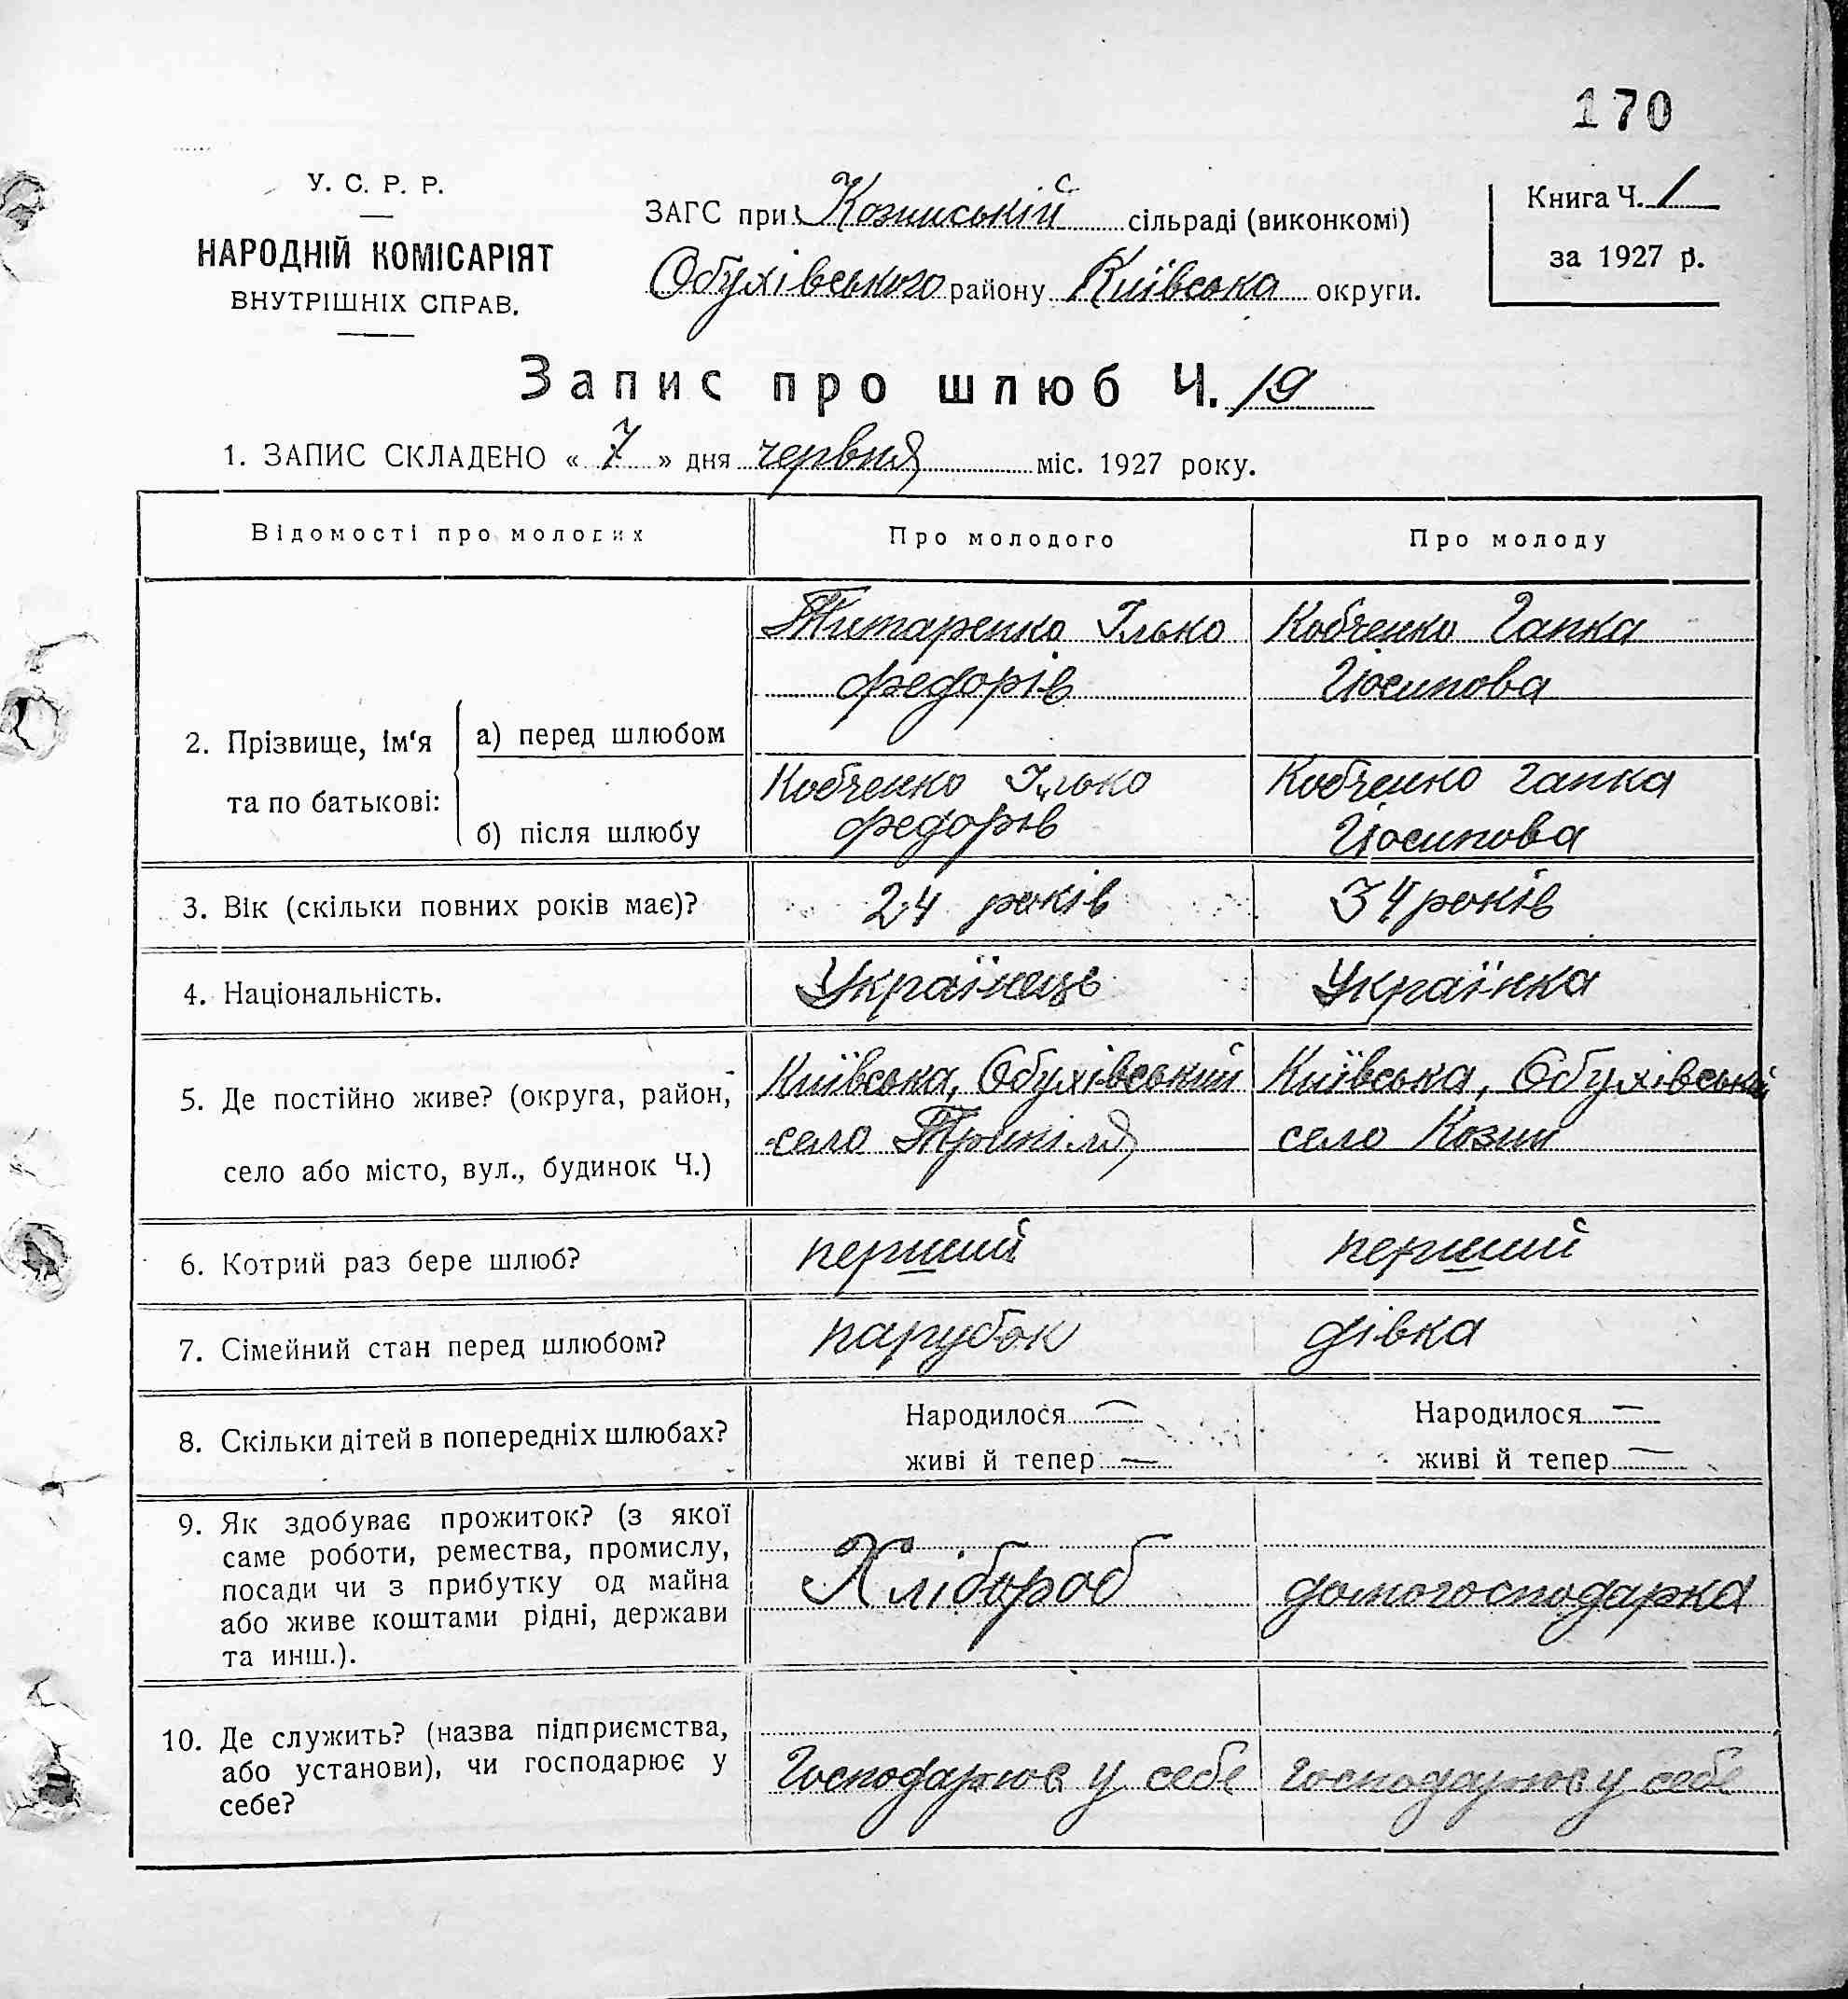 170
У. С. Р. Р.
НАРОДНІЙ КОМІСАРІЯТ
ВНУТРІШНІХ СПРАВ.
ЗАГС при Козинській сільраді (виконкомі)
Обухівського району Київська округи.
Книга Ч. 1
за 1927 р.
Запис про шлюб Ч. 19
1. ЗАПИС СКЛАДЕНО « 7 » дня червня міс. 1927 року.
Відомості про молодих
Про молодого
Про молоду
2. Прізвище, ім'я та по батькові:
а) перед шлюбом
Титаренко Ілько
федорів
Кобченко Гапка
Йосипова
б) після шлюбу
Кобченко Ілько
федорів
Кобченко Гапка
Йосипова
3. Вік (скільки повних років має)?
24 років
34 років
4. Національність.
Українець
Українка
5. Де постійно живе? (округа, район,
село або місто, вул., будинок Ч.)
Київська, Обухівський
село Трипілля
Київська, Обухівський
село Козин
6. Котрий раз бере шлюб?
перший
перший
7. Сімейний стан перед шлюбом?
парубок
дівка
8. Скільки дітей в попередніх шлюбах?
Народилося —
живі й тепер —
Народилося —
живі й тепер —
9. Як здобуває прожиток? (з якої
саме роботи, ремества, промислу,
посади чи з прибутку од майна
або живе коштами рідні, держави
та инш.).
Хлібороб
домогосподарка
10. Де служить? (назва підприємства,
або установи), чи господарює у
себе?
Господарює у себе
Господарює у себе